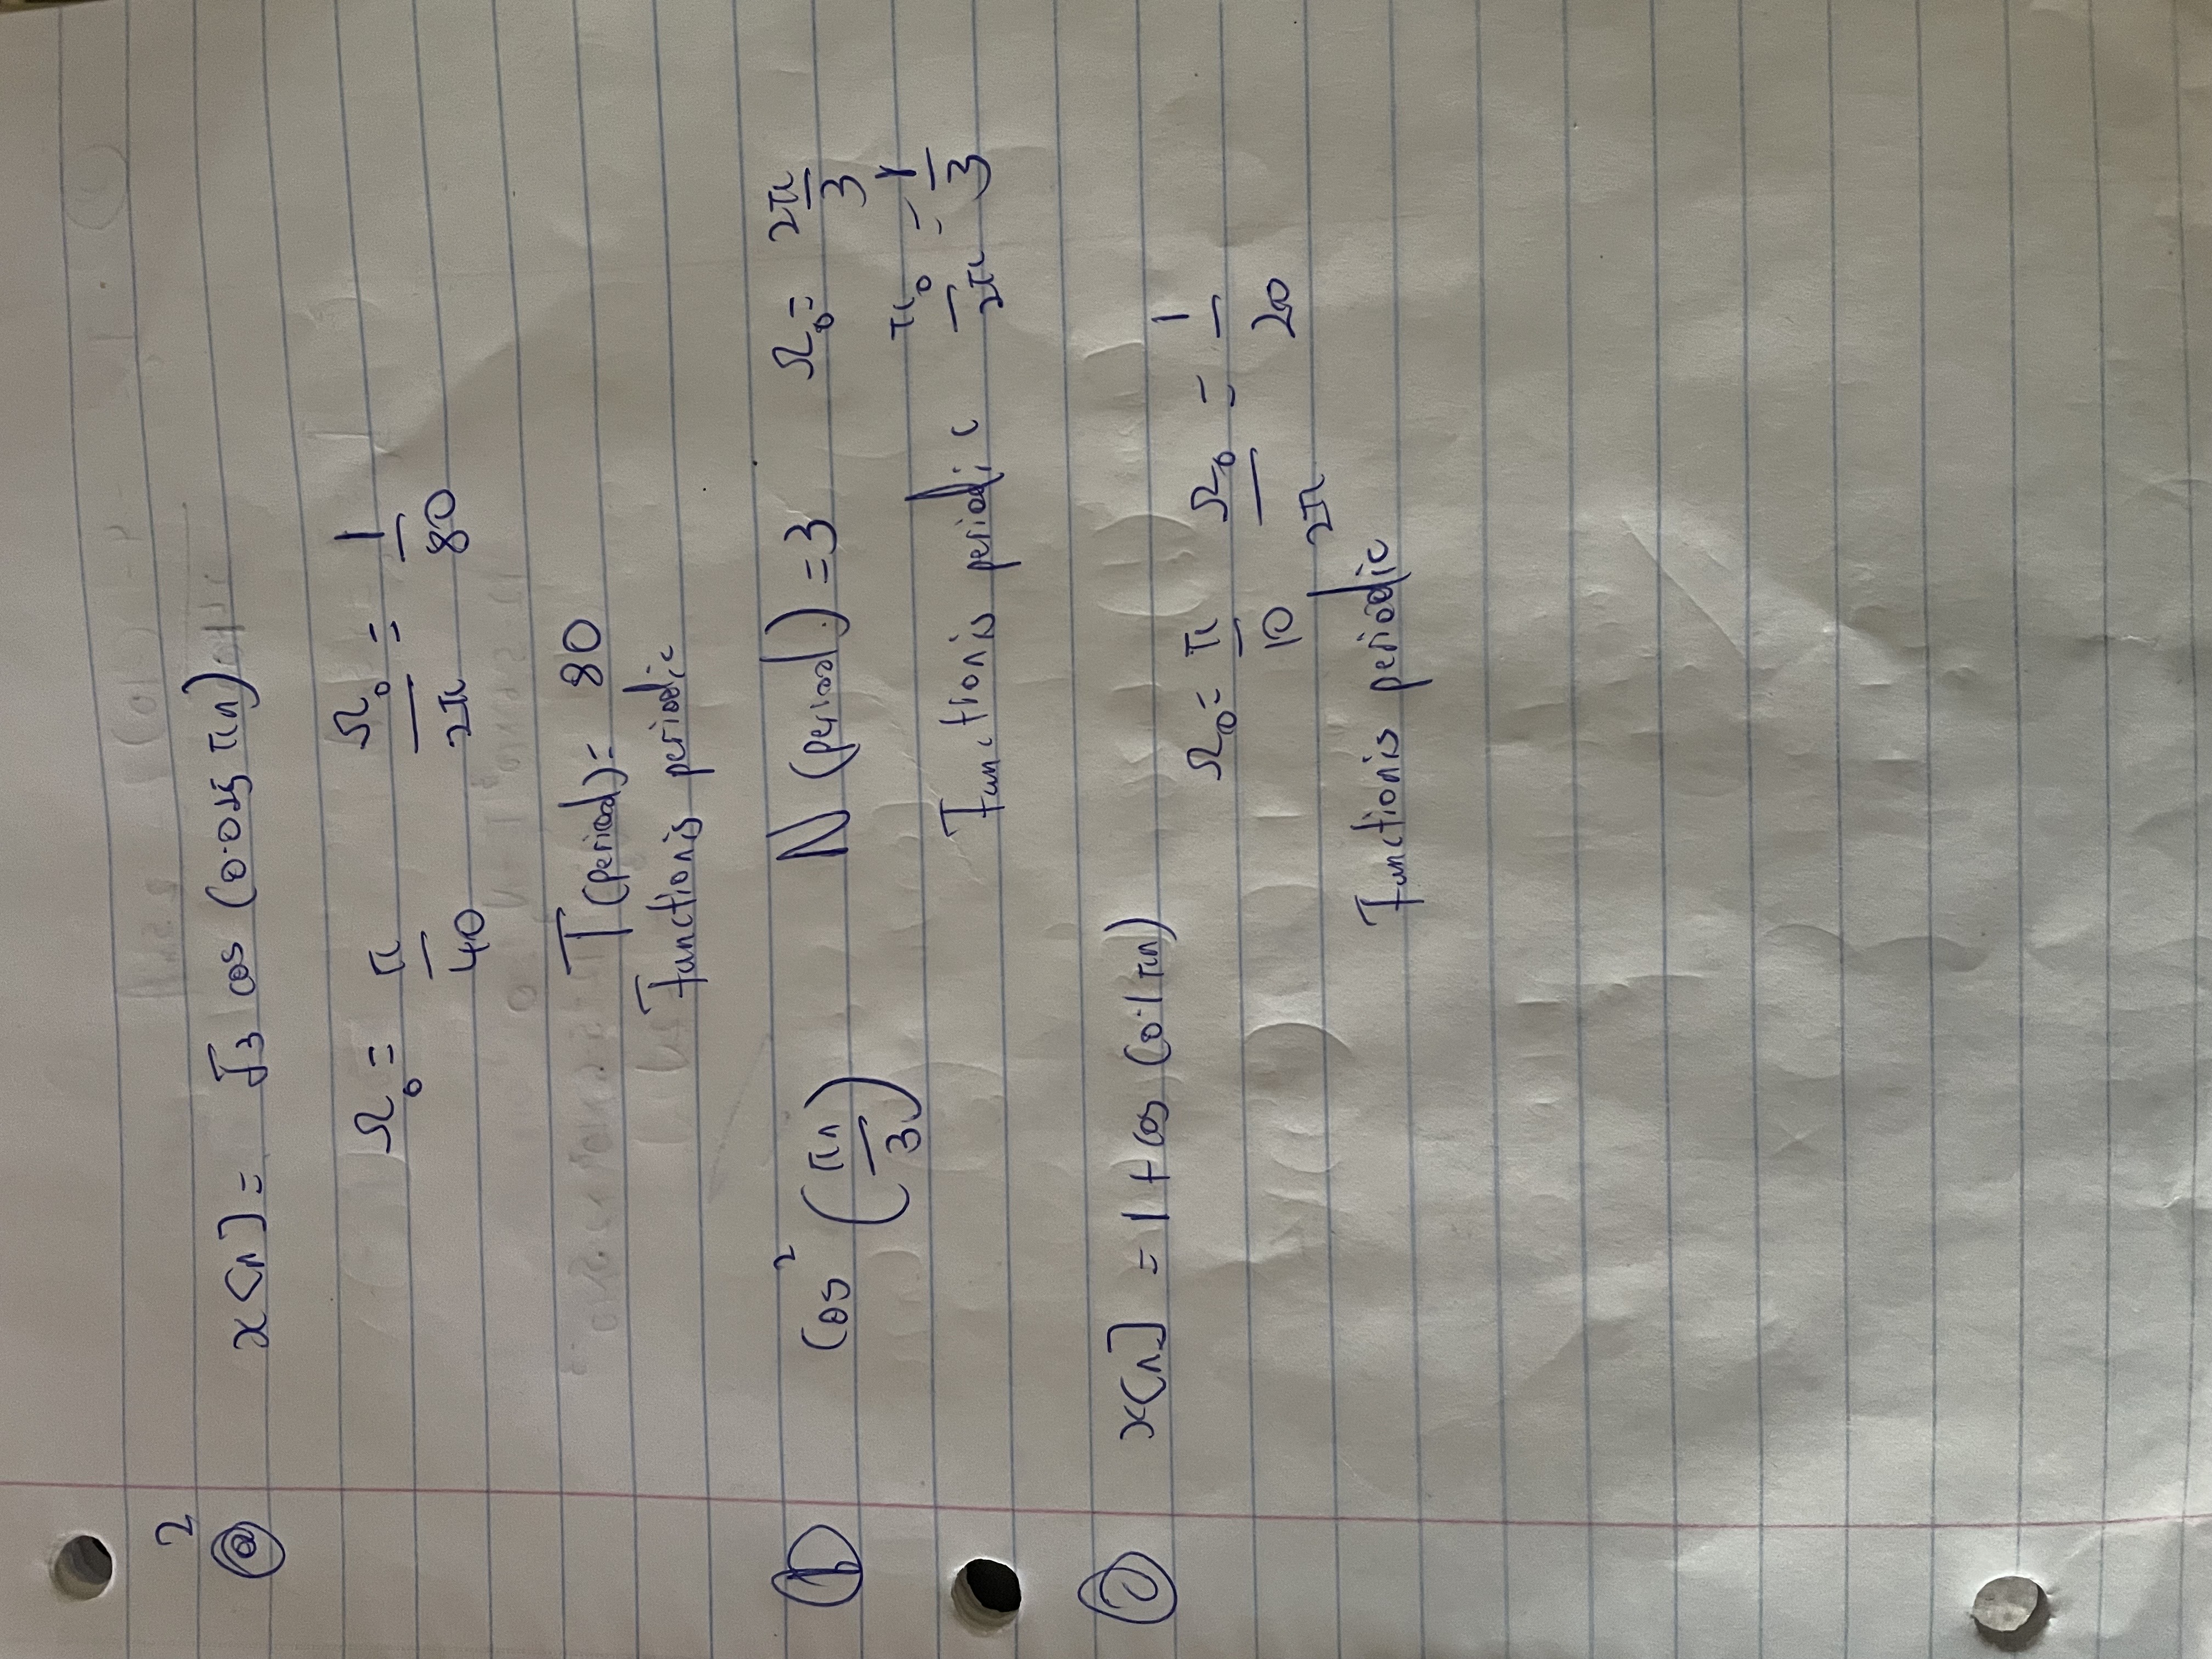 2
(a) x[n] = √3 cos (0.025 πn)
Ω₀ = π/40 Ω₀/2π = 1/80
T(period) = 80
Function is periodic
(b) Cos² (πn/3) N (period.) = 3 Ω₀ = 2π/3
Function is periodic π₀/2π = 1/3
(c) x[n] = 1 + cos (0.1 πn)
Ω₀ = π/10 Ω₀/2π = 1/20
Function is periodic